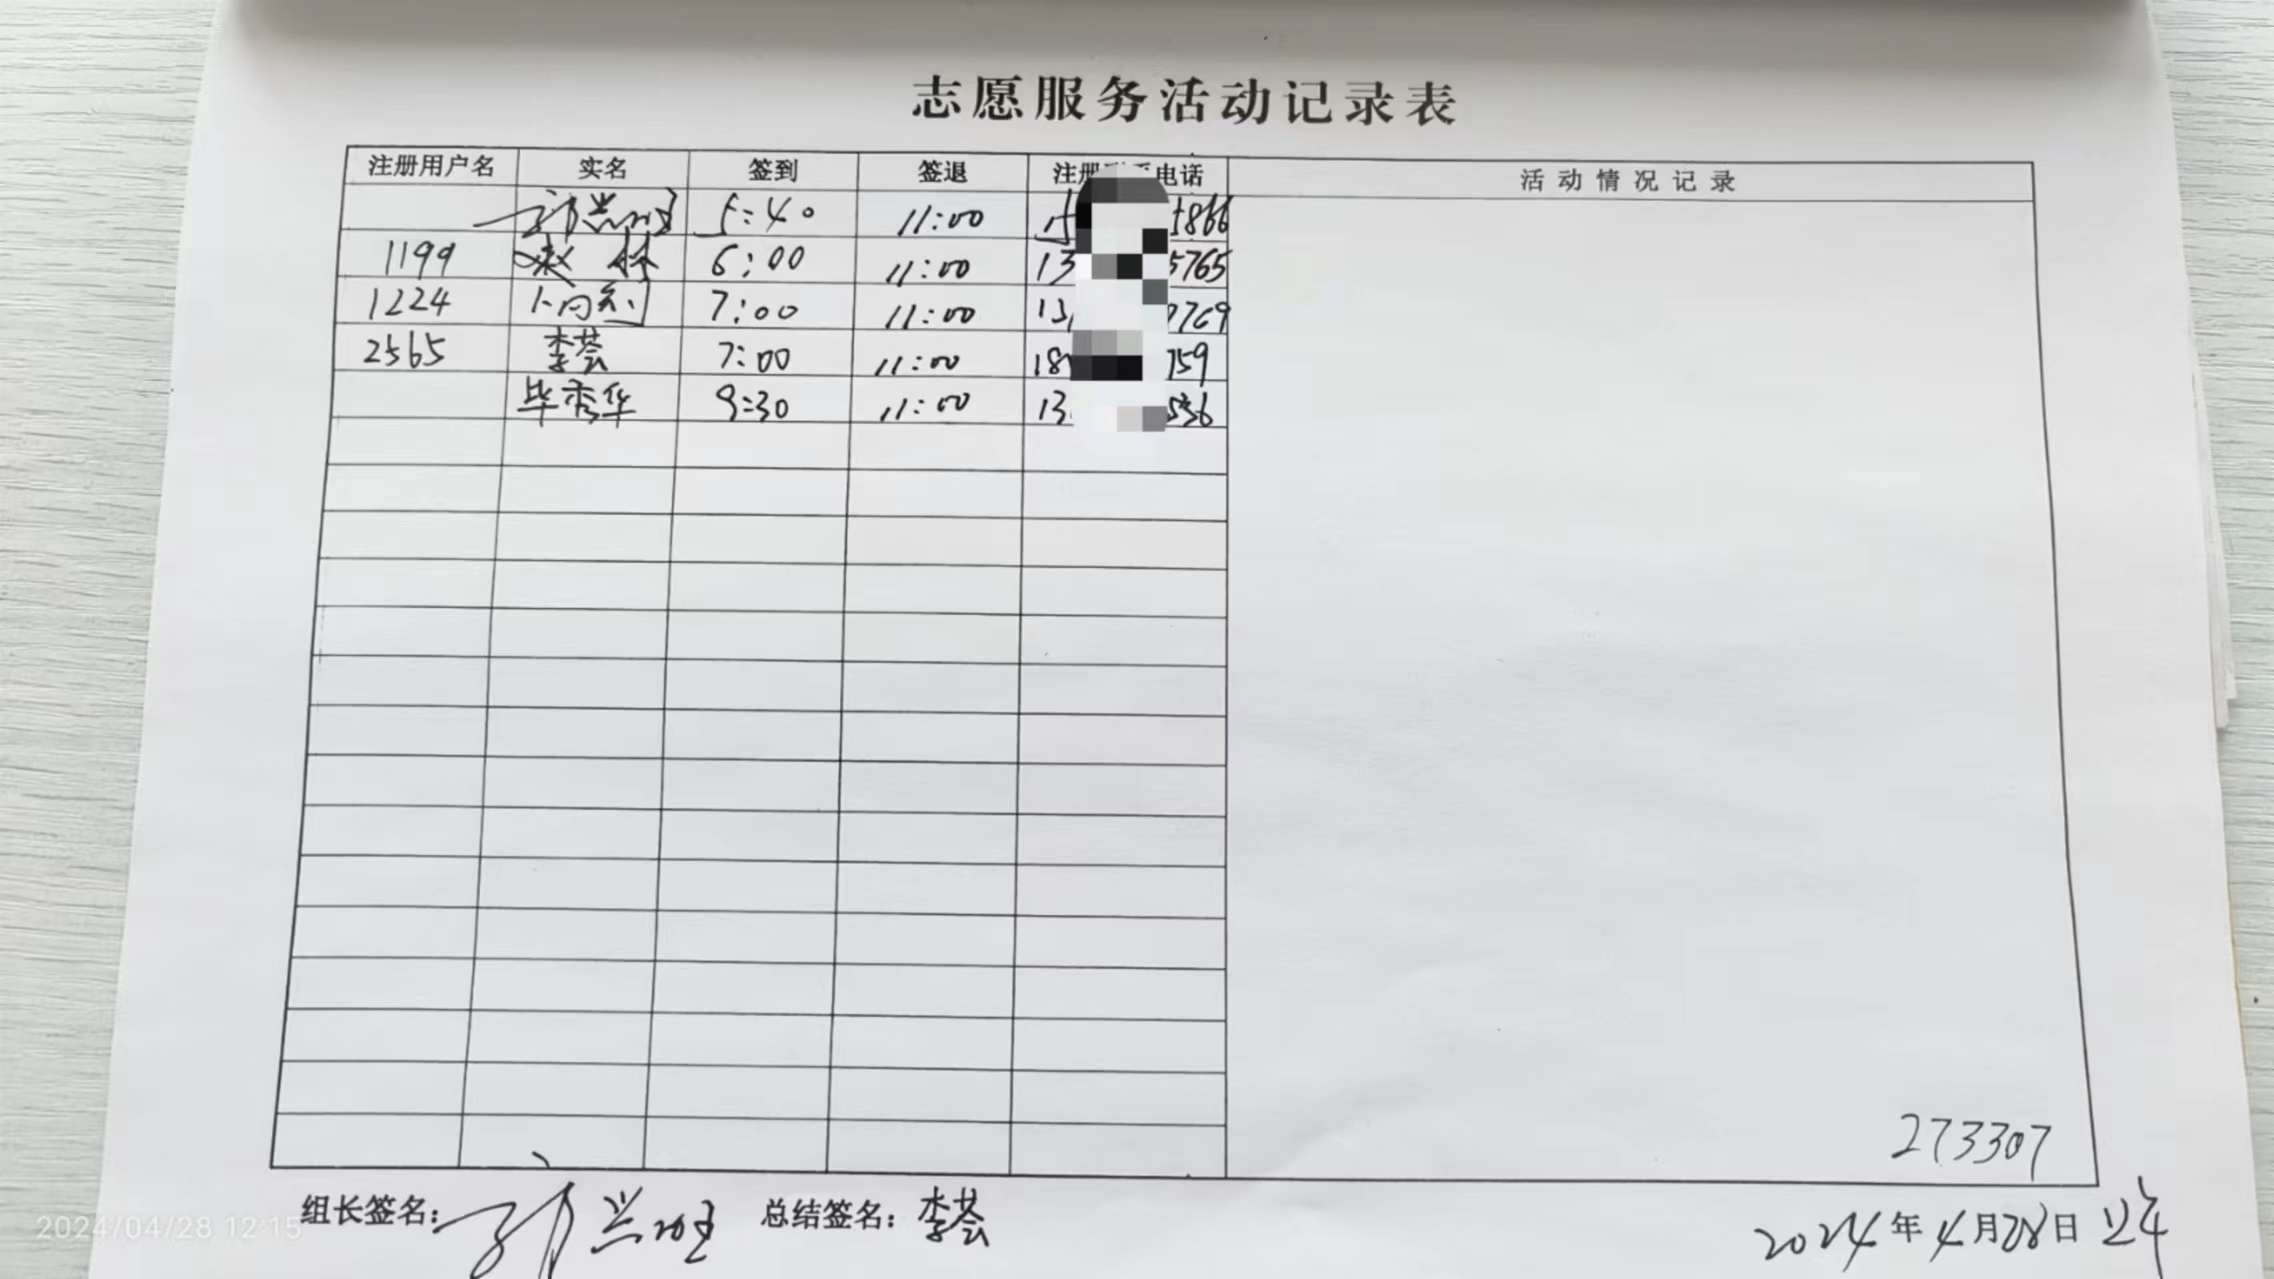 志愿服务活动记录表
注册用户名 实名 签到 签退 注册 电话 活动情况记录
5:40 11:00 15 5866
1199 6:00 11:00 13 5765
1224 7:00 11:00 13
2565 李荟 7:00 11:00 18 759
毕秀华 9:30 11:00 13 536
273307
组长签名： 总结签名：李荟
2024年4月28日
2024/04/28 12:15